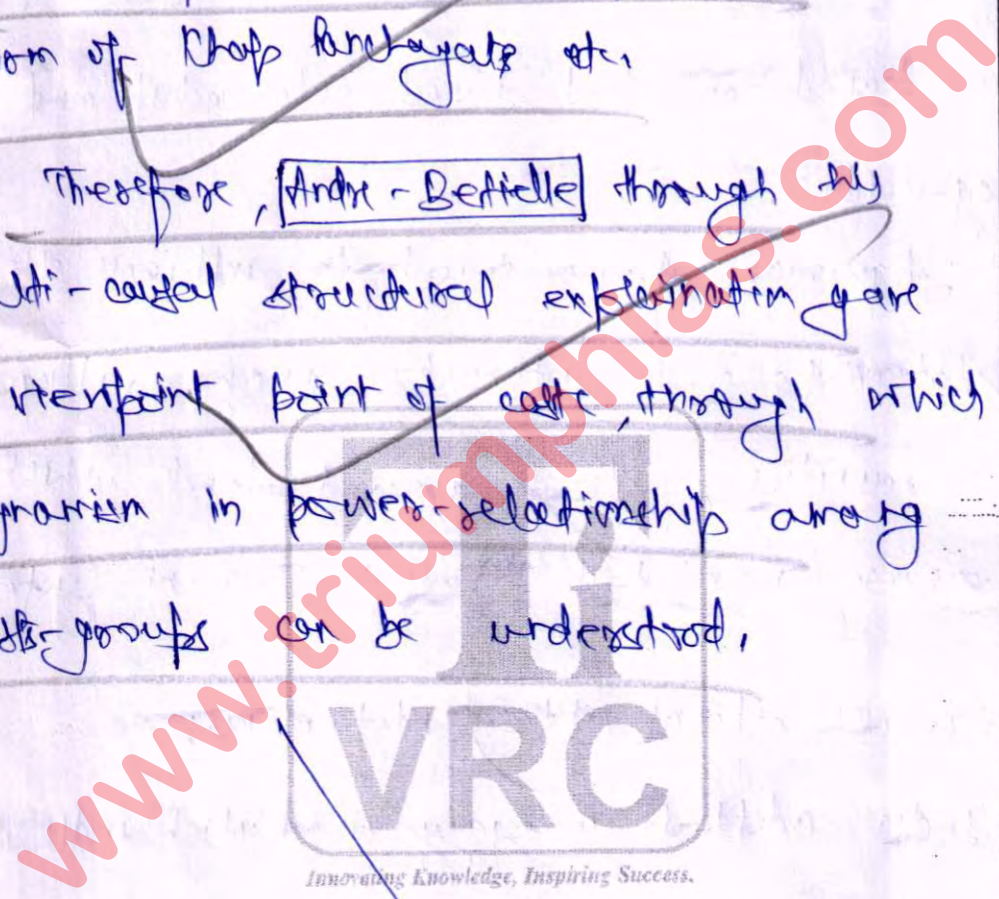 om of Khap Panchayats etc.
Therefore, Andre - Beteille through his
lti-causal structural explaination gave
viewpoint point of caste, through which
namism in power-relationship among
groups can be understood.
www.triumphias.com
Ti
VRC
Innovating Knowledge, Inspiring Success.